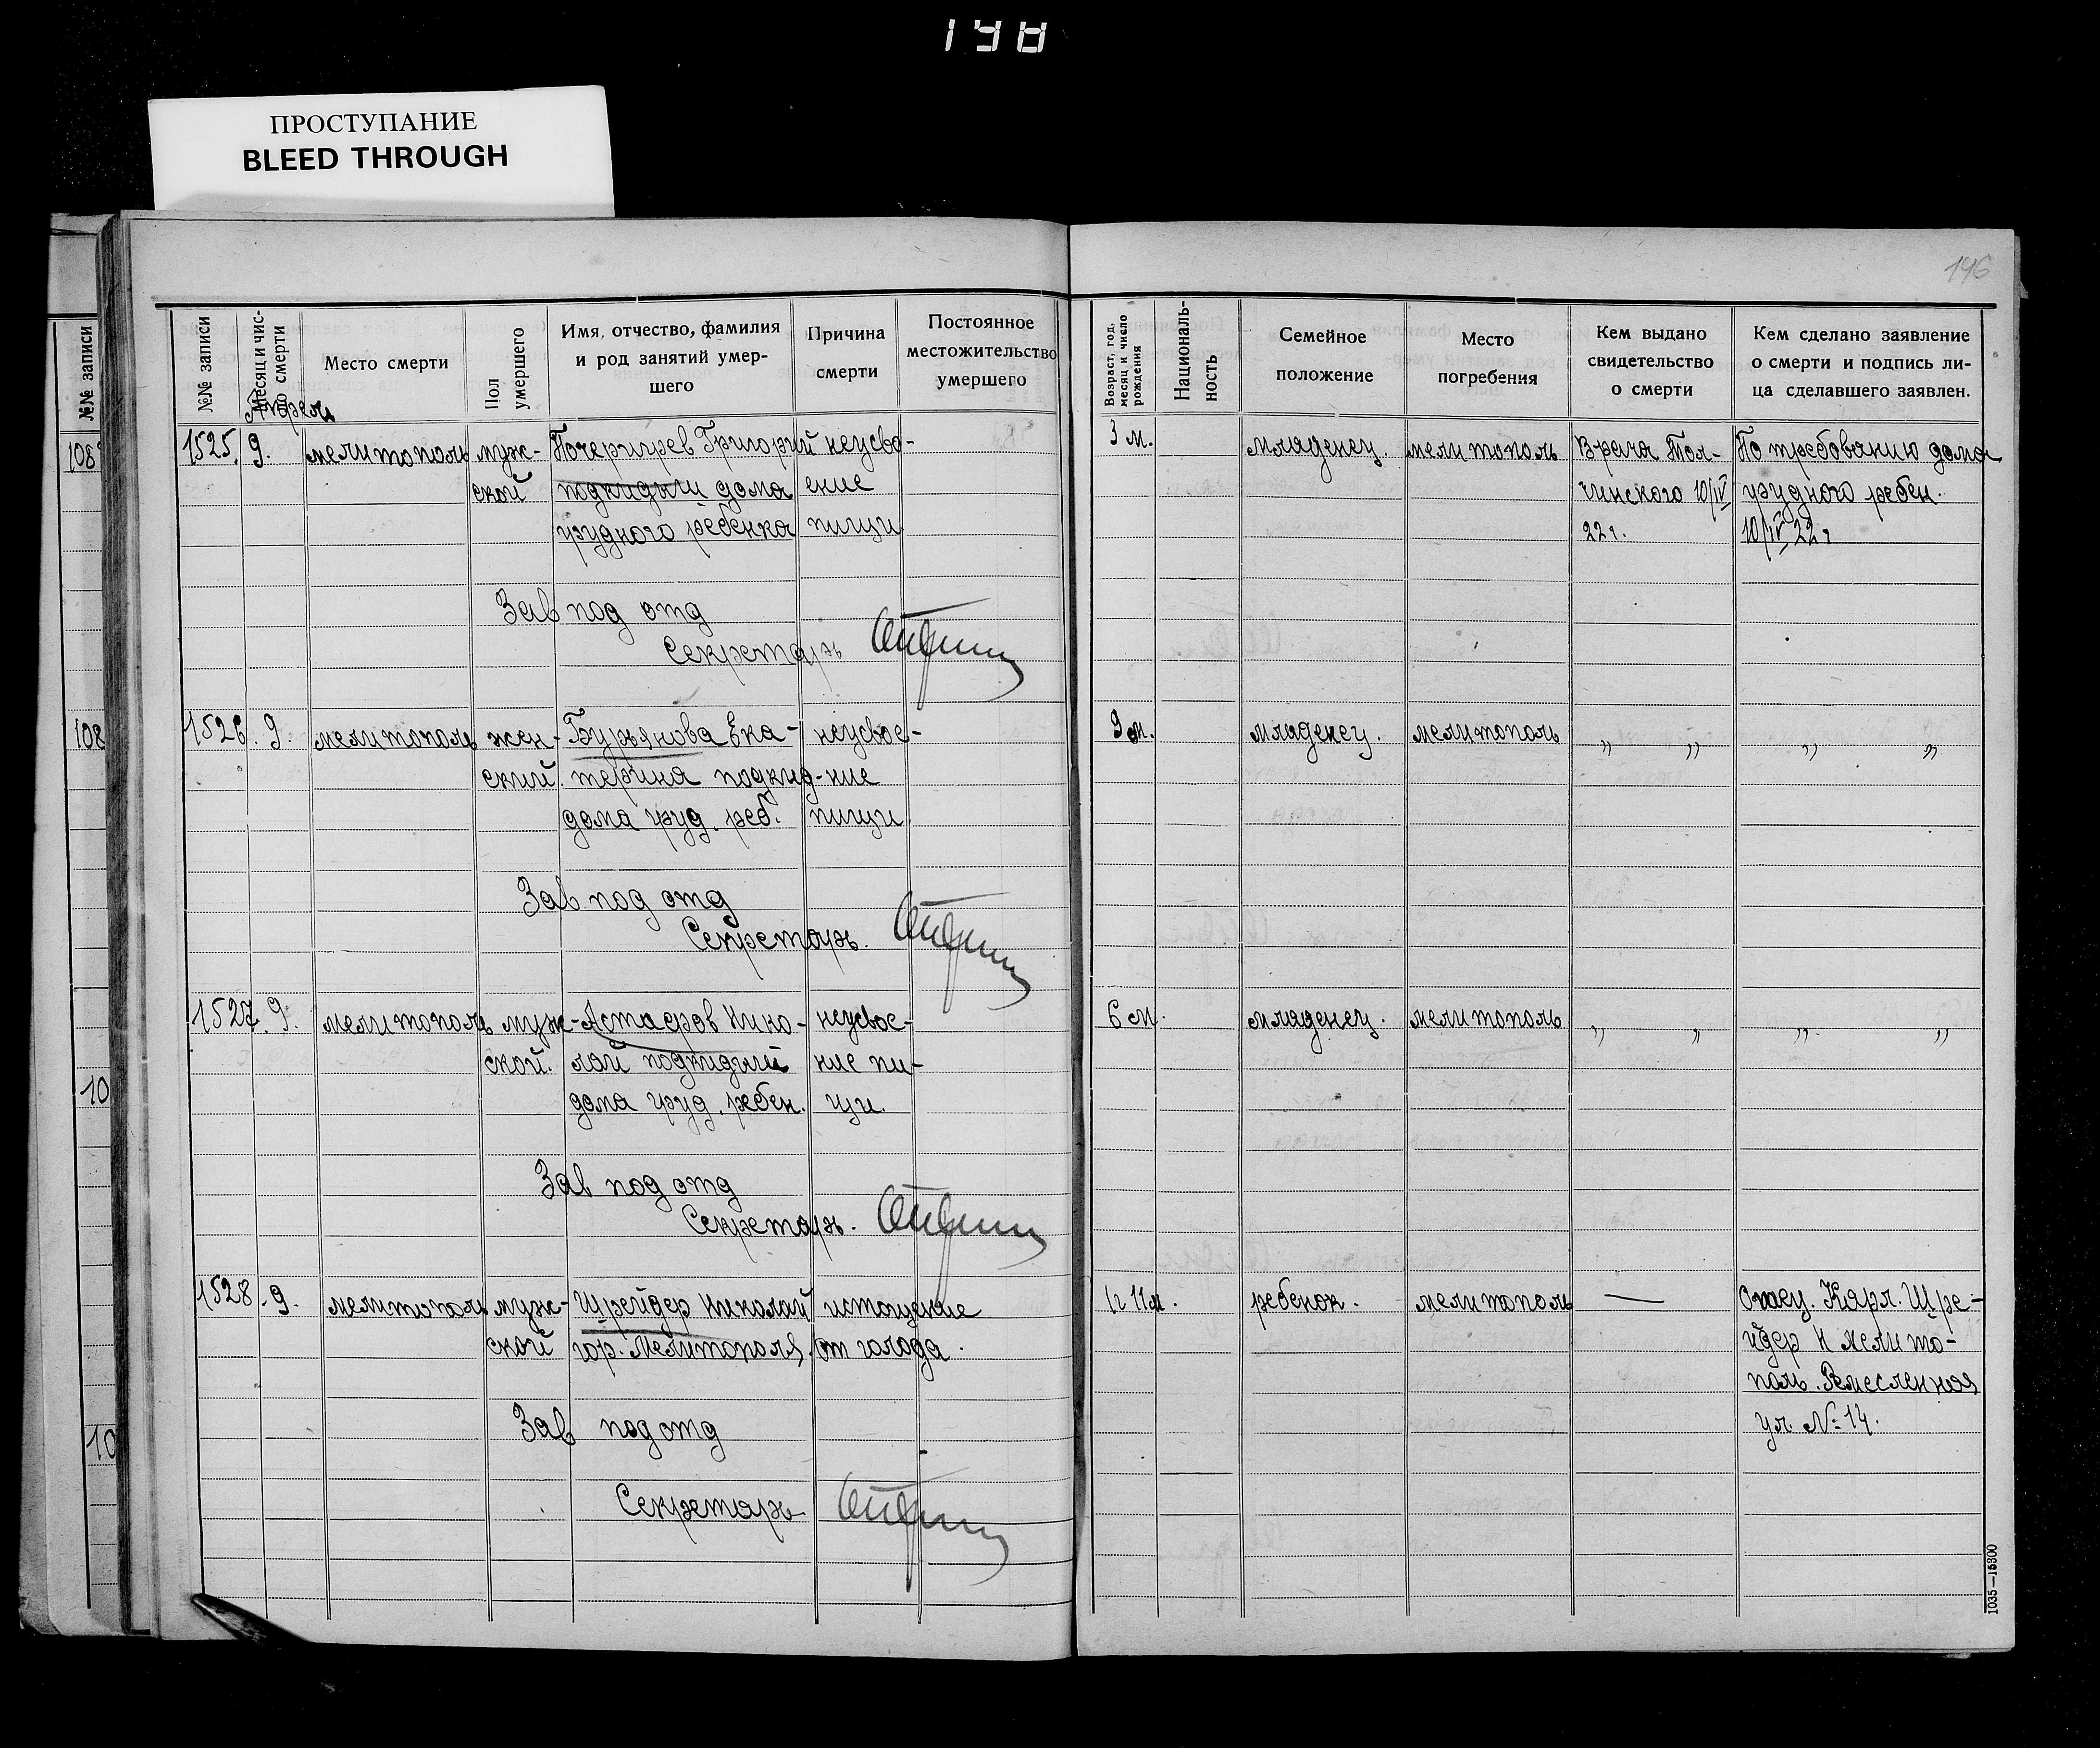 198
ПРОСТУПАНИЕ
BLEED THROUGH
196
№№ записи
№№ записи
Месяц и чис-
ло смерти
Место смерти
Пол
умершего
Имя, отчество, фамилия
и род занятий умер-
шего
Причина
смерти
Постоянное
местожительство
умершего
Возраст, год,
месяц и число
рождения
Националь-
ность
Семейное
положение
Место
погребения
Кем выдано
свидетельство
о смерти
Кем сделано заявление
о смерти и подпись ли-
ца сделавшего заявлен.
Апрель
108
1525. 9. мелитополь муж- Григорий неусво- 3 м. младенец. мелитополь Врача Тол- По требованию дома
ской подкидыш дома ение чинского 10/IV грудного ребен.
грудного ребенка пищи 22 г. 10/IV 22 г
Зав под отд
Секретарь
108
1526. 9. мелитополь жен- Бурьянова Ека- неусвое- 9 м. младенец. мелитополь „ „ „ „
ский. терина подкид- ние
дома груд. реб. пищи
Зав. под отд
Секретарь.
1527. 9. мелитополь муж- Астафров Нико- неусвое- 6 м. младенец. мелитополь „ „ „ „
ской. лай подкидыш ние пи-
10
дома груд. ребен. щи.
Зав под отд
Секретарь.
1528. 9. мелитополь муж- Шрейдер Николай истощение 1 г 11 м. ребенок. мелитополь — Отец. Карл. Шре-
ской гор. Мелитополя. от голода. йдер Н мелито-
поль. Ремесленная
10
Зав под отд ул № 14.
Секретарь
1035—15300